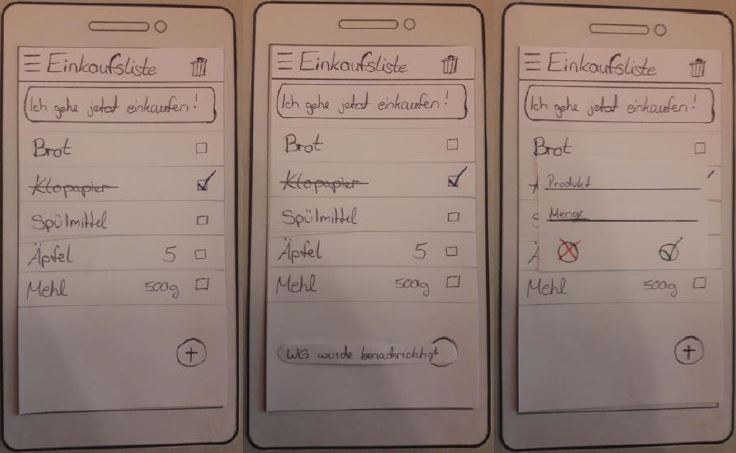 Einkaufsliste
Ich gehe jetzt einkaufen!
Brot
Klopapier
Spülmittel
Äpfel 5
Mehl 500g
+
Einkaufsliste
Ich gehe jetzt einkaufen!
Brot
Klopapier
Spülmittel
Äpfel 5
Mehl 500g
WG wurde benachrichtigt
Einkaufsliste
Ich gehe jetzt einkaufen!
Brot
Produkt
Menge
Mehl 500g
+